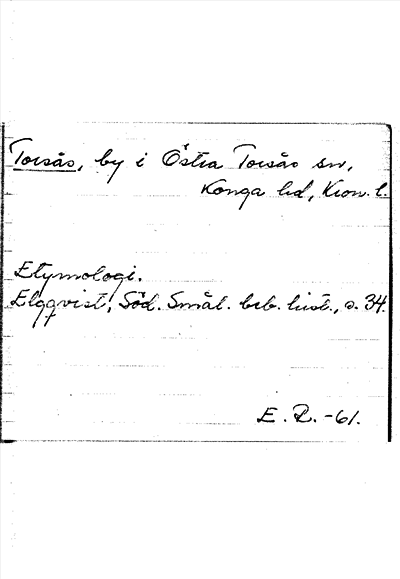 Torsås, by i Östra Torsås sn,
Konga hd, Kron. l.
Etymologi.
Elgqvist, Söd. Smål. beb. hist., s. 34.
E. R. -61.